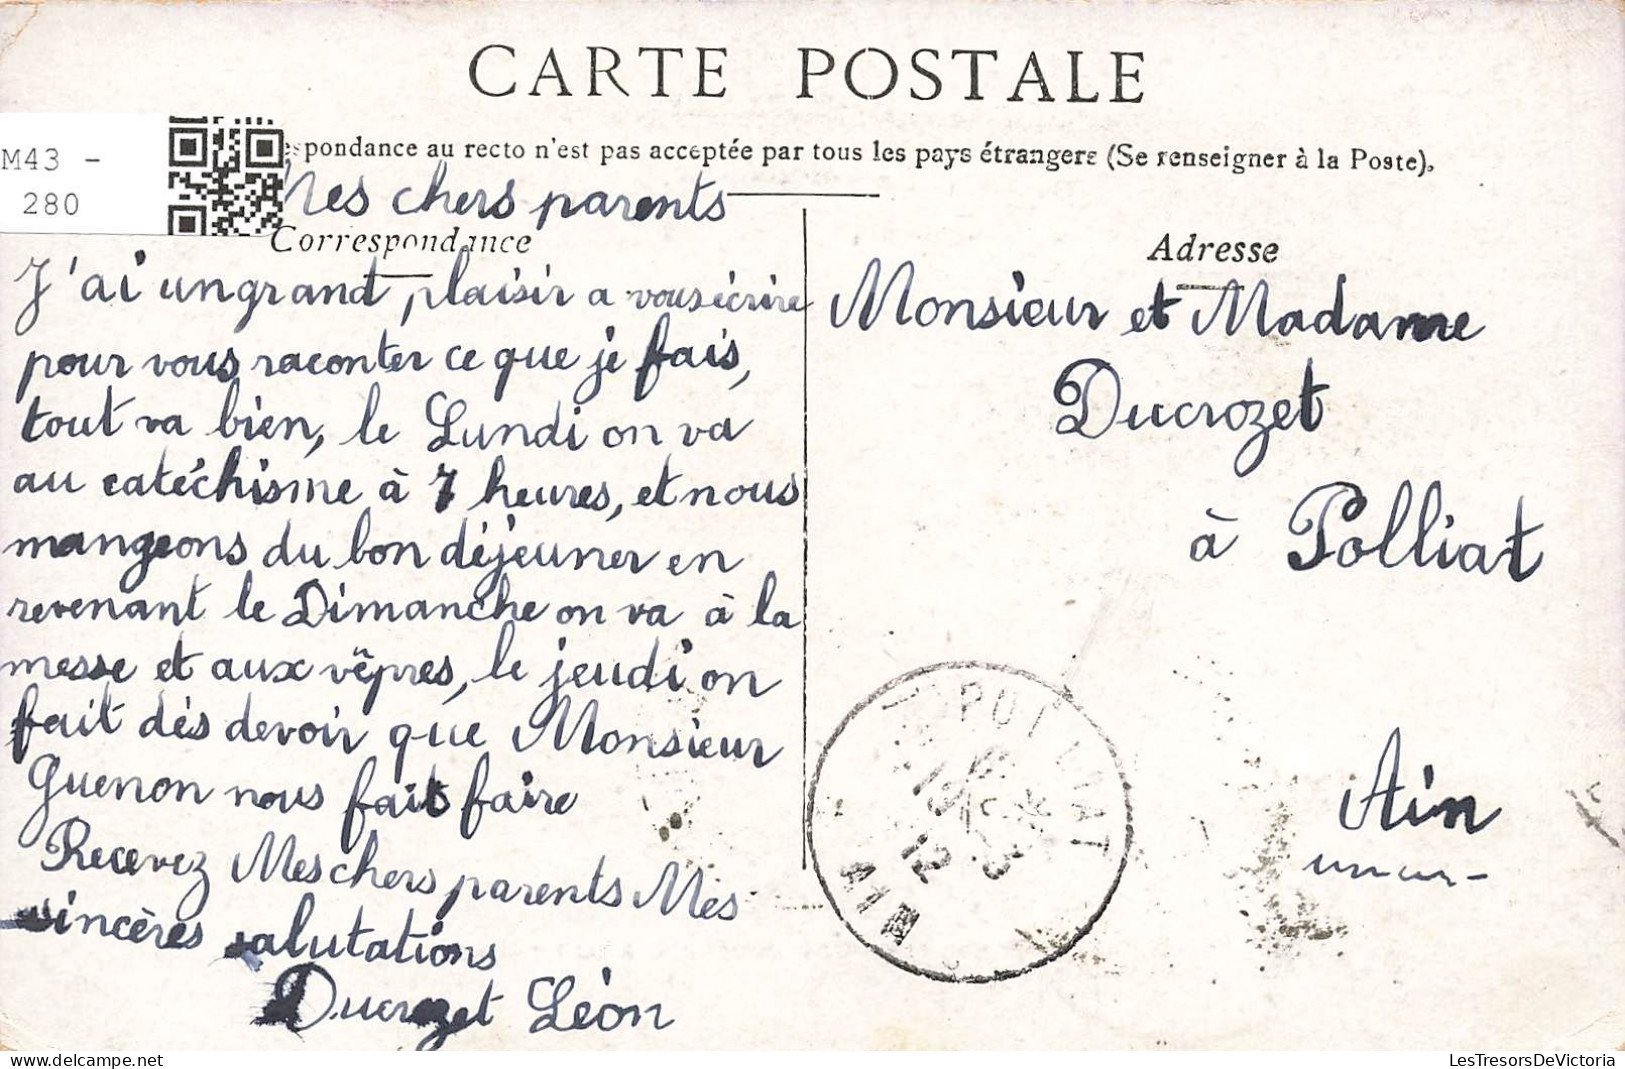 CARTE POSTALE
M43 -
280
pondance au recto n'est pas acceptée par tous les pays étrangers (Se renseigner à la Poste).
Mes chers parents
Correspondance
J'ai un grand plaisir a vous écrire
pour vous raconter ce que je fais,
tout va bien, le Lundi on va
au catéchisme à 7 heures, et nous
mangeons du bon déjeuner en
revenant le Dimanche on va à la
messe et aux vêpres, le jeudi on
fait dés devoir que Monsieur
Guenon nous fait faire
Recevez Mes chers parents Mes
sincères salutations
Ducrozet Léon
Adresse
Monsieur et Madame
Ducrozet
à Polliat
Ain
POLLIAT
12
AIN
LesTresorsDeVictoria
delcampe.net